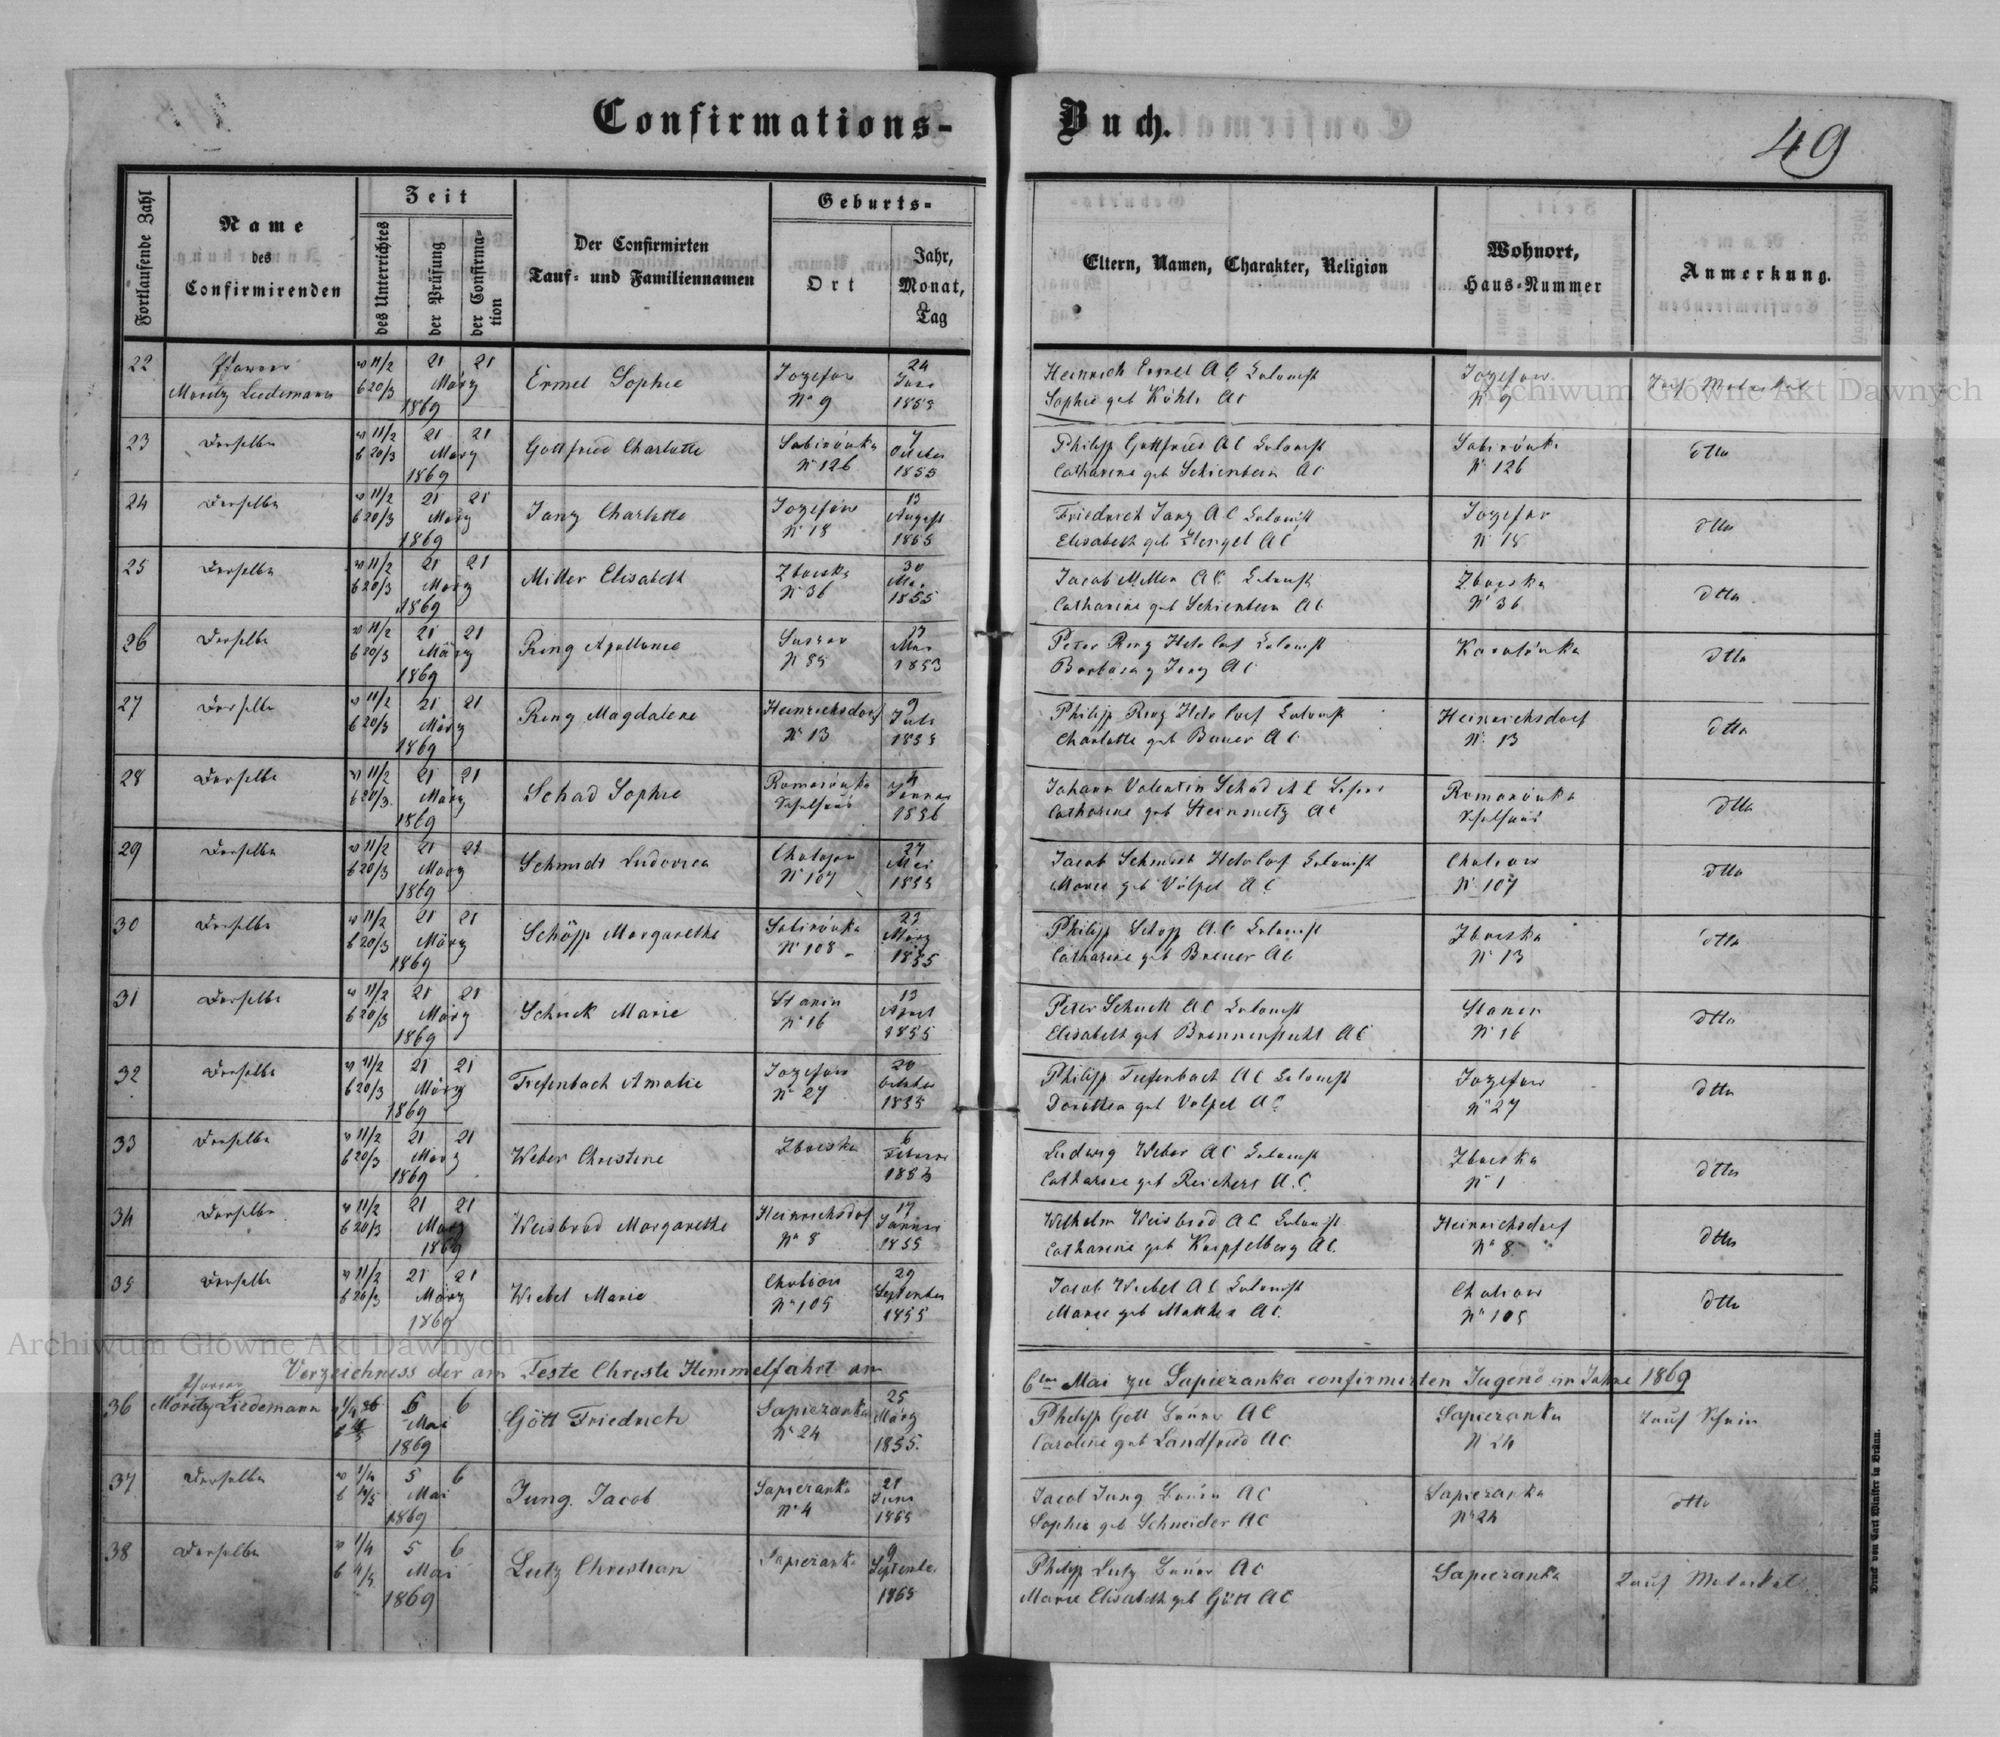 Confirmations-Buch.
49
Fortlaufende Zahl
Name
des
Confirmirenden
Zeit
des Unterrichtes
der Prüfung
der Confirma-
tion
Der Confirmirten
Tauf- und Familiennamen
Geburts-
Ort
Jahr,
Monat,
Tag
Eltern, Namen, Charakter, Religion
Wohnort,
Haus-Nummer
Anmerkung.
22 Pfarrer 11/2 21 21 Ermel Sophie Jozefow 24 Heinrich Ermel AC Jozefow
Moritz Liedemann b 20/3 März No 9 1855 Sophie geb Köhle AC No 9
1869
23 Derselbe 11/2 21 21 Gottfried Charlotte Sabinówka 7 Philipp Gottfried AC Colonist Sabinówka dtto
b 20/3 März No 126 October Catharine geb Schienbein AC No 126
1869 1855
24 Derselbe 11/2 21 21 Janz Charlotte Jozefow 13 Friedrich Janz AC Colonist Jozefow dtto
b 20/3 März No 18 August Elisabeth geb Stengel AC No 18
1869 1855
25 Derselbe 11/2 21 21 Miller Elisabeth Zboiska 30 Jacob Miller AC Colonist Zboiska dtto
b 20/3 März No 36 Mai Catharine geb Schienbein AC No 36
1869 1855
26 Derselbe 11/2 21 21 Ring Apollonie No 85 Mai Peter Ring Helv Conf Colonist Karolówka dtto
b 20/3 März 1853 Barbara g Janz AC
1869
27 Derselbe 11/2 21 21 Ring Magdalene Heinrichsdorf 9 Philipp Ring Helv Conf Colonist Heinrichsdorf dtto
b 20/3 März No 13 Juli Charlotte geb Bauer AC No 13
1869 1855
28 Derselbe 11/2 21 21 Schad Sophie Romanówka 4 Johann Valentin Schad AC Romanówka dtto
b 20/3 März Schulhaus Jänner Catharine geb Steinmetz AC Schulhaus
1869 1856
29 Derselbe 11/2 21 21 Schmidt Ludovica No 107 27 Jacob Schmidt Helv Conf Colonist No 107 dtto
b 20/3 März Mai Marie geb Völpel AC
1869 1855
30 Derselbe 11/2 21 21 Schöpp Margarethe Sabinówka 23 Philipp Schöpp AC Colonist Zboiska dtto
b 20/3 März No 108 März Catharine geb Breuer AC No 13
1869 1855
31 Derselbe 11/2 21 21 Schuck Marie Stanin 13 Peter Schuck AC Colonist Stanin dtto
b 20/3 März No 16 April Elisabeth geb AC No 16
1869 1855
32 Derselbe 11/2 21 21 Tiefenbach Amalie Jozefow 20 Philipp Tiefenbach AC Colonist Jozefow dtto
b 20/3 März No 27 October Dorothea geb Volpel AC No 27
1869 1855
33 Derselbe 11/2 21 21 Weber Christine Zboiska 6 Ludwig Weber AC Colonist Zboiska dtto
b 20/3 März Februar Catharine geb Reichert A.C. No 1
1869
34 Derselbe 11/2 21 21 Weisbrod Margarethe Heinrichsdorf 17 Wilhelm Weisbrod AC Colonist Heinrichsdorf dtto
b 20/3 März No 8 Jänner Catharine geb Knipfelberg AC No 8
1869 1855
35 Derselbe 11/2 21 21 Wiebel Marie No 105 29 Jacob Wiebel AC Colonist No 105 dtto
b 20/3 März September Marie geb Matthis AC
1869 1855
Verzeichniss der am Feste Christi Himmelfahrt am 6ten Mai zu Sapiezanka confirmirten Jugend im Jahre 1869
36 Pfarrer Moritz Liedemann 6 6 Gött Friedrich Sapiezanka 25 Philipp Gött Bauer AC Sapiezanka Tauf Schein
Mai No 24 März Caroline geb Landfried AC No 24
1869 1855.
37 Derselbe 1/4 5 6 Jung Jacob Sapiezanka 21 Jacob Jung Bauer AC Sapiezanka dtto
b 4/5 Mai No 4 Juni Sophie geb Schneider AC No 24
1869 1855
38 Derselbe 1/4 5 6 Lutz Christian Sapiezanka 9 Philipp Lutz Bauer AC Sapiezanka Tauf Matrikel
b 4/5 Mai September Marie Elisabeth geb Gött AC
1869 1855
Druck von Carl Winiker in Brünn.
Archiwum Główne Akt Dawnych
Archiwum Główne Akt Dawnych